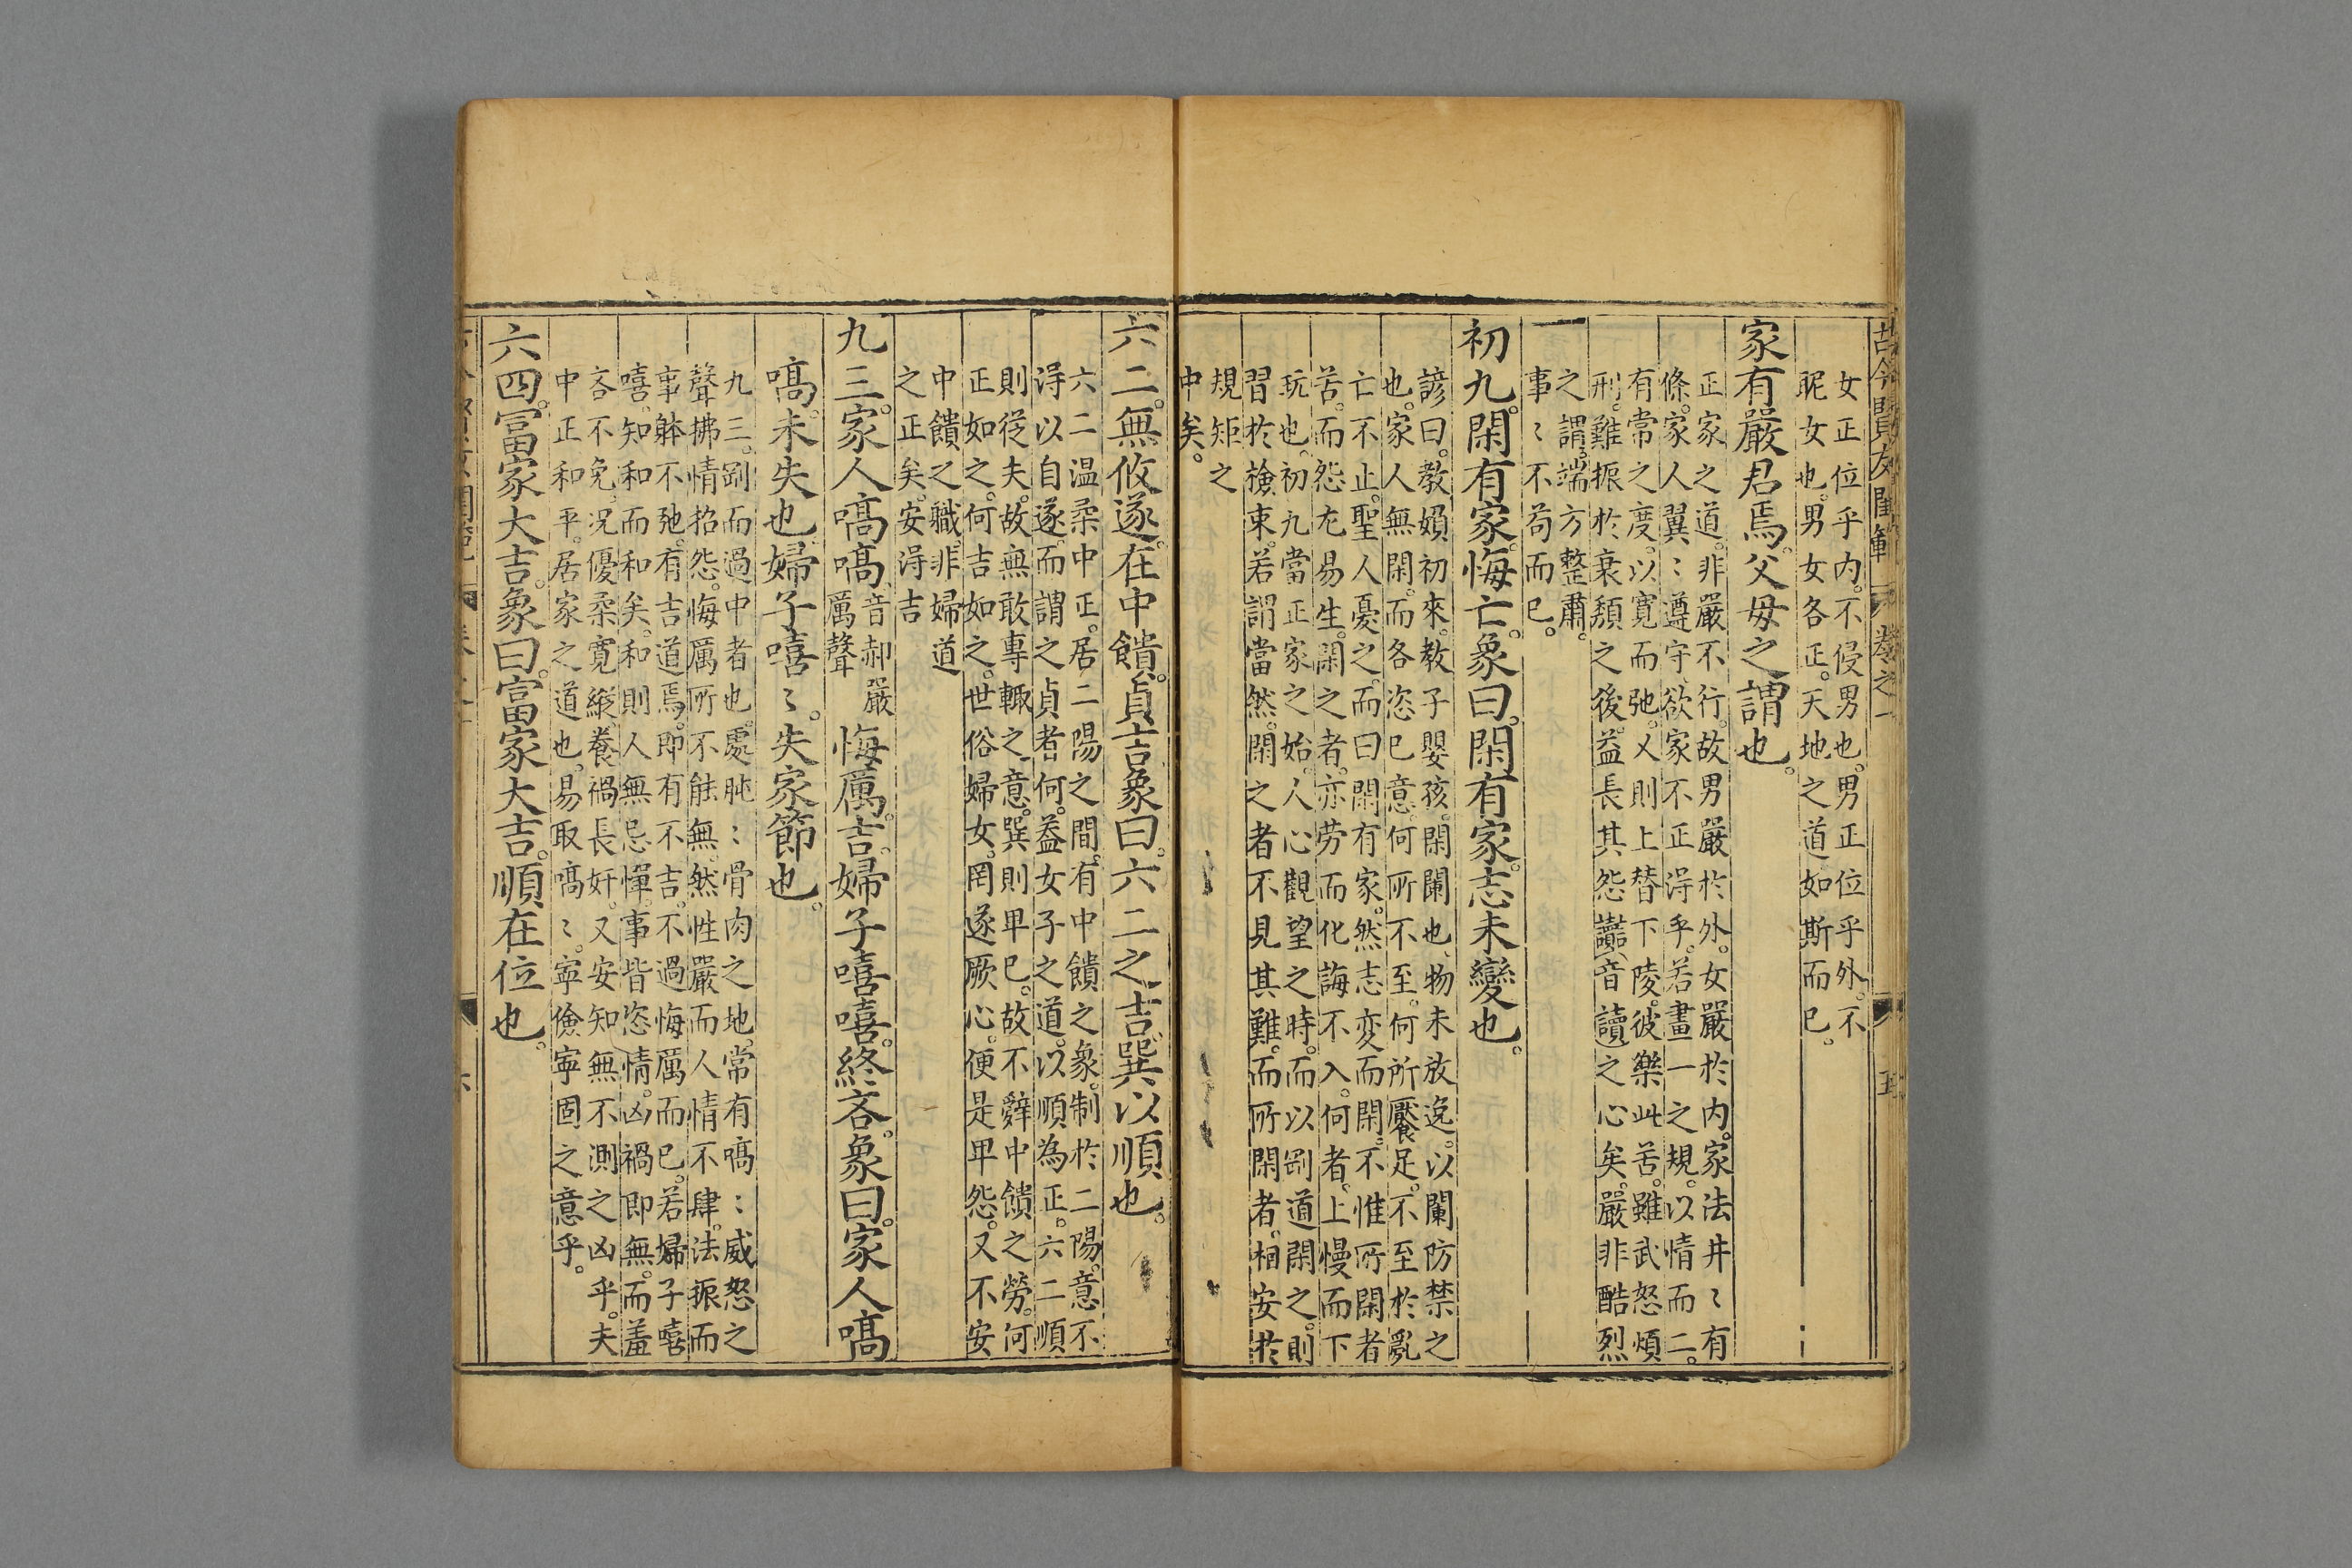 古今賢女閨範 卷之一
女正位乎内。不侵男也。男正位乎外。不
眤女也。男女各正。天地之道如斯而已。
家有嚴君焉。父母之謂也。
正家之道。非嚴不行。故男嚴於外。女嚴於内。家法井〻有
條。家人翼〻遵守。欲家不正淂乎。若畫一之規。以情而二。
有常之度。以寬而弛。乂則上替下陵。彼樂此苦。雖武怒煩
刑。難振於衰頽之後。益長其怨讟音讀之心矣。嚴非酷烈
之謂。端方整肅。
事〻不苟而已。
初九。閑有家。悔亡。象曰。閑有家。志未變也。
諺曰。教嬪初來。教子嬰孩。閑闌也。物未放逸。以闌防禁之
也。家人無閑。而各恣已意。何所不至。何所饜足。不至於亂
亡不止。聖人憂之。而曰閑有家。然志变而閑。不惟所閑者
苦。而怨尤易生。閑之者。亦劳而化誨不入。何者。上慢而下
玩也。初九當正家之始。人心觀望之時。而以剛道閑之。則
習於檢束。若謂當然。閑之者不見其難。而所閑者。相安於
規矩之
中矣。
六二。無攸遂。在中饋。貞吉。象曰。六二之吉。巽以順也。
六二温柔中正。居二陽之間。有中饋之象。制於二陽。意不
淂以自遂。而謂之貞者何。葢女子之道。以順為正。六二順
則従夫。故無敢專輙之意。巽則卑巳。故不辤中饋之勞。何
正如之。何吉如之。世俗婦女。罔遂厥心。便是卑怨。又不安
中饋之職。非婦道
之正矣。安淂吉
九三。家人嗃嗃音郝嚴厲聲悔厲。吉。婦子嘻嘻。終吝。象曰。家人嗃
嗃。未失也。婦子嘻〻。失家節也。
九三。剛而過中者也。處肫〻骨肉之地。常有嗃〻威怒之
聲。拂情招怨。悔厲所不能無。然性嚴而人情不肆。法振而
事躰不弛。有吉道焉。即有不吉。不過悔厲而已。若婦子嘻
嘻。知和而和矣。和則人無忌憚。事皆恣情。凶禍即無。而羞
吝不免。况優柔寛縦。養禍長奸。又安知無不測之凶乎。夫
中正和平。居家之道也。易取嗃〻。寧儉寧固之意乎。
六四。富家大吉。象曰。富家大吉。順在位也。